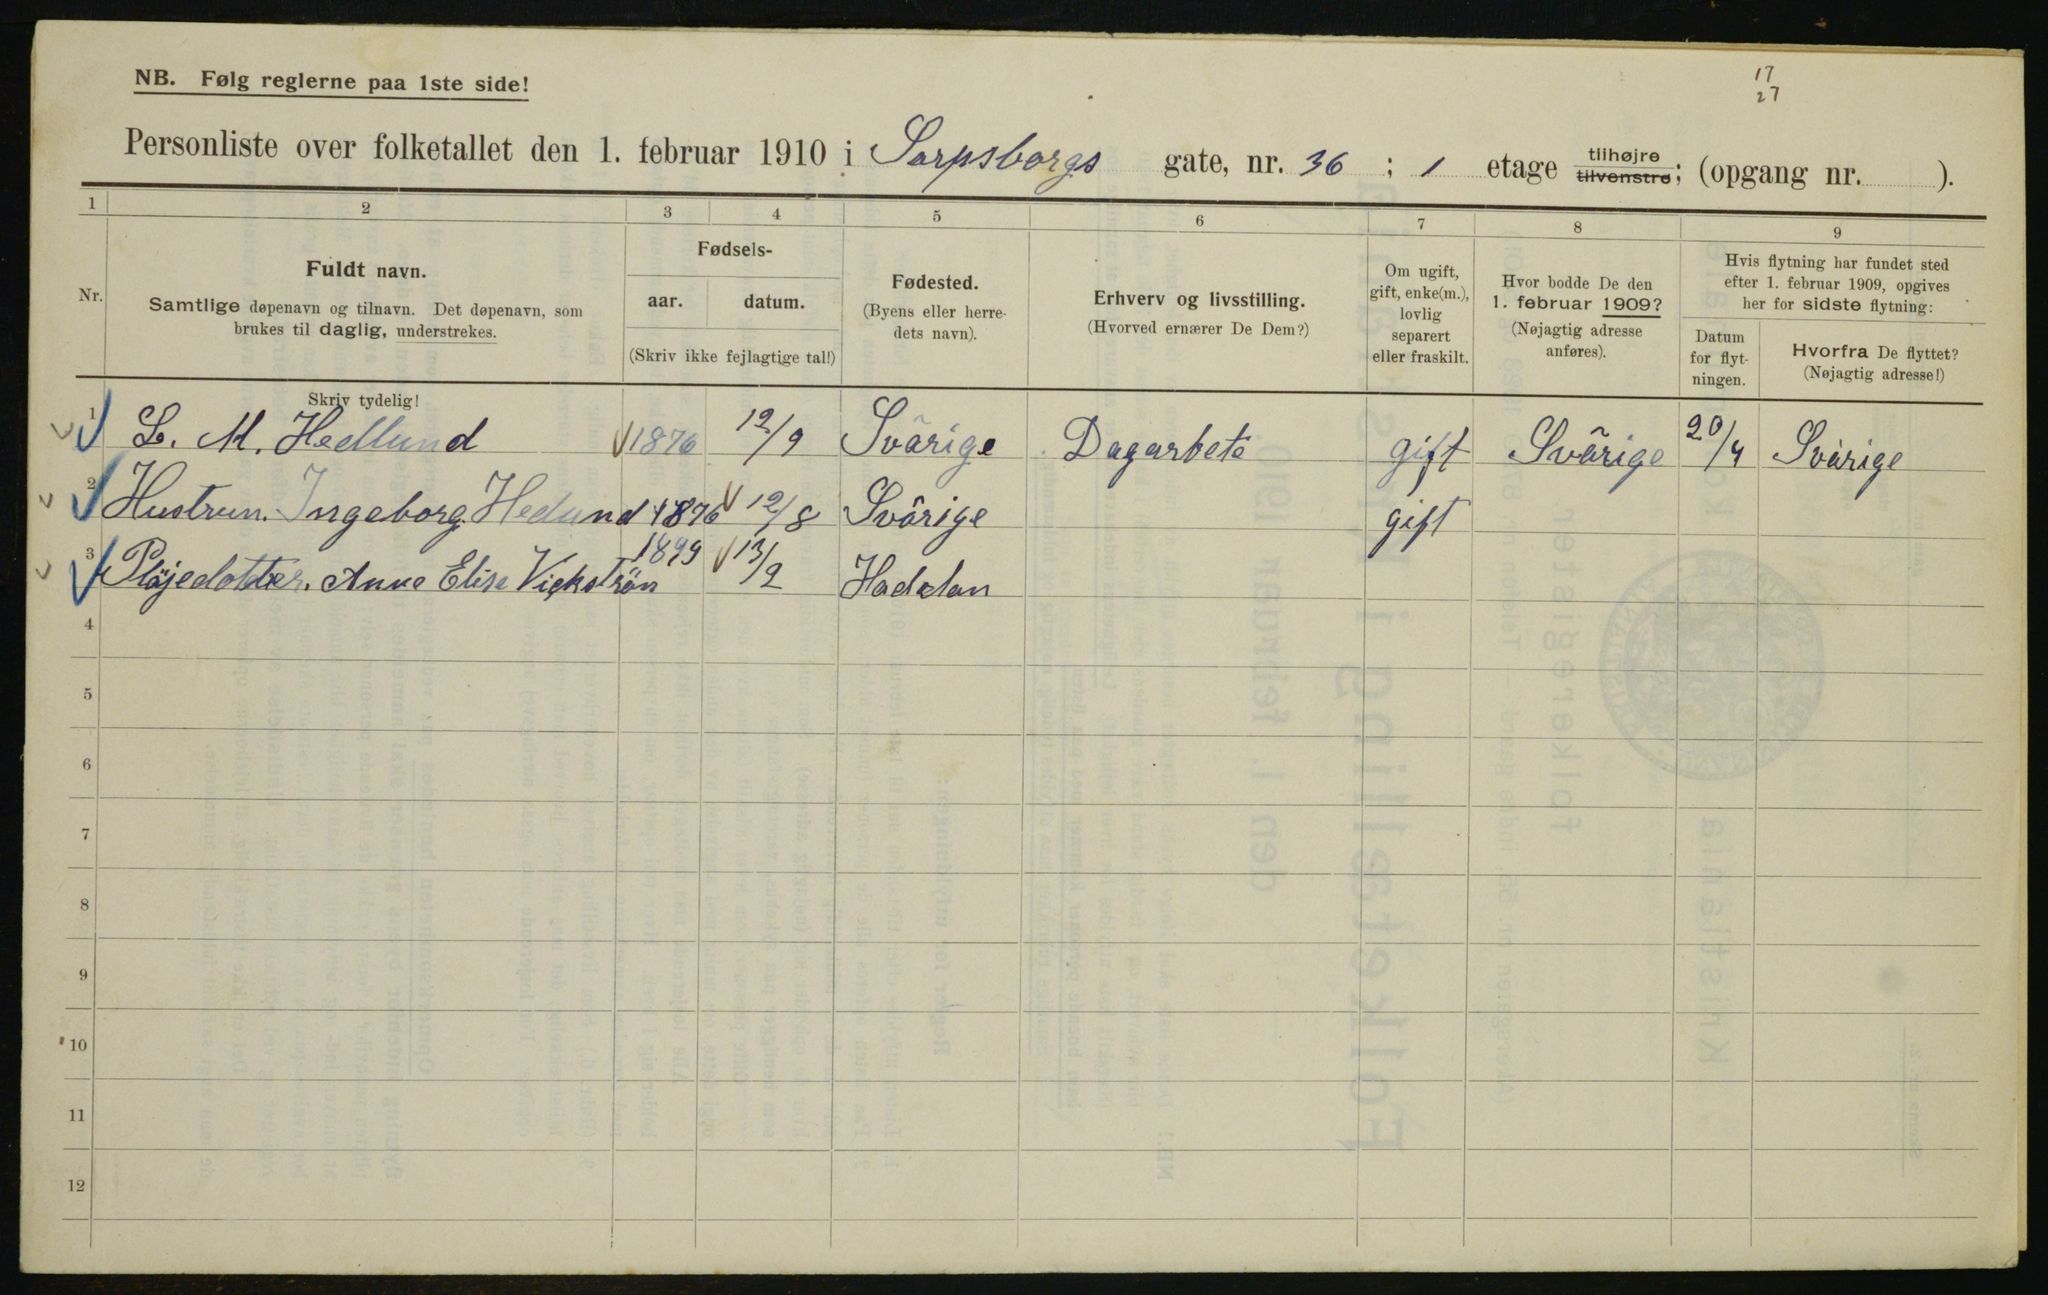 17
27
NB. Følg reglerne paa 1ste side!
Personliste over folketallet den 1. februar 1910 i Sarpsborgs gate, nr. 36 ; 1 etage tilhøjre tilvenstre; (opgang nr. ).
1 2 3 4 5 6 7 8 9
Nr.
Fuldt navn.
Samtlige døpenavn og tilnavn. Det døpenavn, som
brukes til daglig, understrekes.
Fødsels-
aar. datum.
(Skriv ikke fejlagtige tal!)
Fødested.
(Byens eller herre-
dets navn).
Erhverv og livsstilling.
(Hvorved ernærer De Dem?)
Om ugift,
gift, enke(m.),
lovlig
separert
eller fraskilt.
Hvor bodde De den
1. februar 1909?
(Nøjagtig adresse
anføres).
Hvis flytning har fundet sted
efter 1. februar 1909, opgives
her for sidste flytning:
Datum
for flyt-
ningen.
Hvorfra De flyttet?
(Nøjagtig adresse!)
Skriv tydelig!
1 L. M. Hedlund 1876 12/9 Svärige Dagarbete gift Svärige 20/4 Svärige
2 Hustrun. Ingeborg Hedund 1876 12/8 Svärige gift
3 Pläjedotter. Anna Elise Vickström 1899 13/2 Haddan
4
5
6
7
8
9
10
11
12